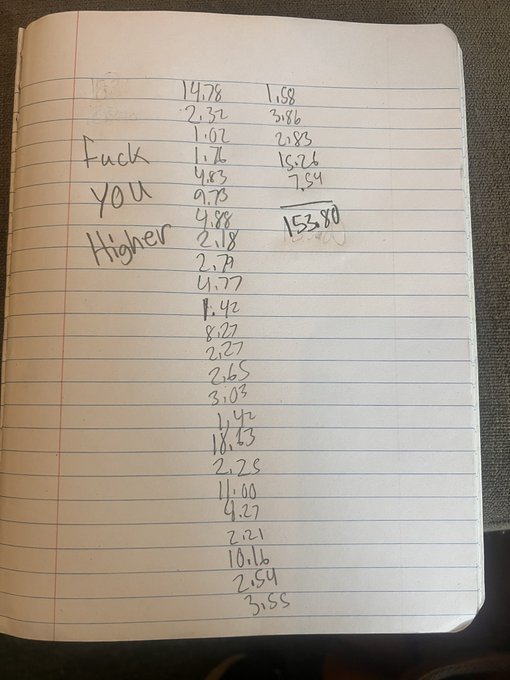 14.78
2.32
1.02
1.76
4.83
9.73
4.88
2.18
2.79
4.77
1.42
8.27
2.27
2.65
3.03
1.42
18.63
2.25
11.00
4.27
2.21
10.16
2.54
3.55
1.58
3.86
2.83
15.26
7.54
153.80
Fuck
you
Higher